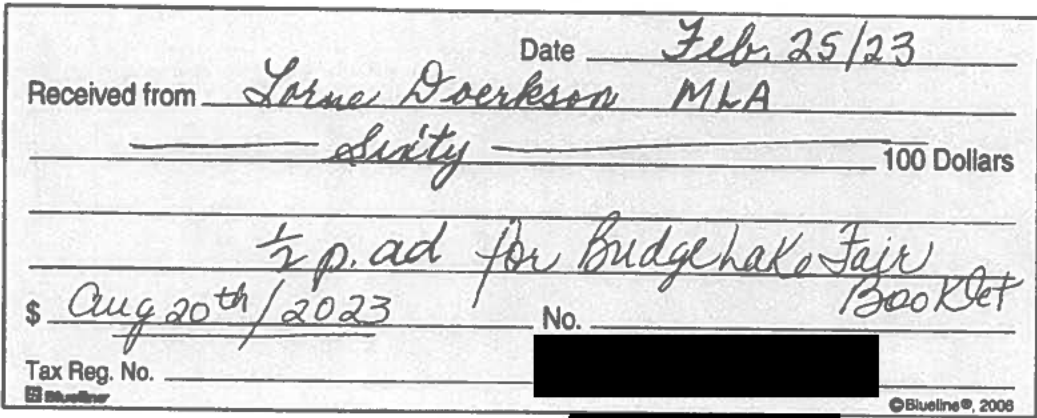 Date Feb. 25/23
Received from Lorne Doerkson MLA
Sixty 100 Dollars
1/2 p. ad for Bridge Lake Fair
Booklet
$ Aug 20th/2023 No.
Tax Reg. No.
Blueline ©Blueline®, 2006